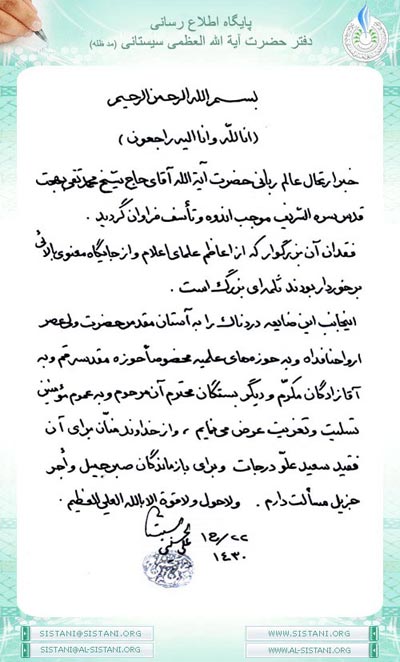 پایگاه اطلاع رسانی
دفتر حضرت آیة الله العظمی سیستانی (مد ظله)
بسم الله الرحمن الرحیم
(انا لله و انا الیه راجعون)
خبر ارتحال عالم ربانی حضرت آیة الله آقای حاج شیخ محمد تقی بهجت
قدس سره الشریف موجب اندوه و تأسف فراوان گردید .
فقدان آن بزرگوار که از اعاظم علمای اعلام و از جایگاه معنوی بالائی
برخوردار بودند ثلمه‌ای بزرگ است .
اینجانب این ضایعه دردناک را به آستان مقدس حضرت ولی عصر
ارواحنا فداه و به حوزه‌های علمیه مخصوصاً حوزه مقدسه قم و به
آقازادگان مکرّم و دیگر بستگان محترم آن مرحوم و به عموم مؤمنین
تسلیت و تعزیت عرض می‌نمایم ، و از خداوند منّان برای آن
فقید سعید علوّ درجات و برای بازماندگان صبر جمیل و أجر
جزیل مسألت دارم . ولا حول ولا قوة الا بالله العلی العظیم .
علی الحسینی
۲۲/ج۱
۱۴۳۰
SISTANI@SISTANI.ORG
WWW.SISTANI.ORG
SISTANI@AL-SISTANI.ORG
WWW.AL-SISTANI.ORG